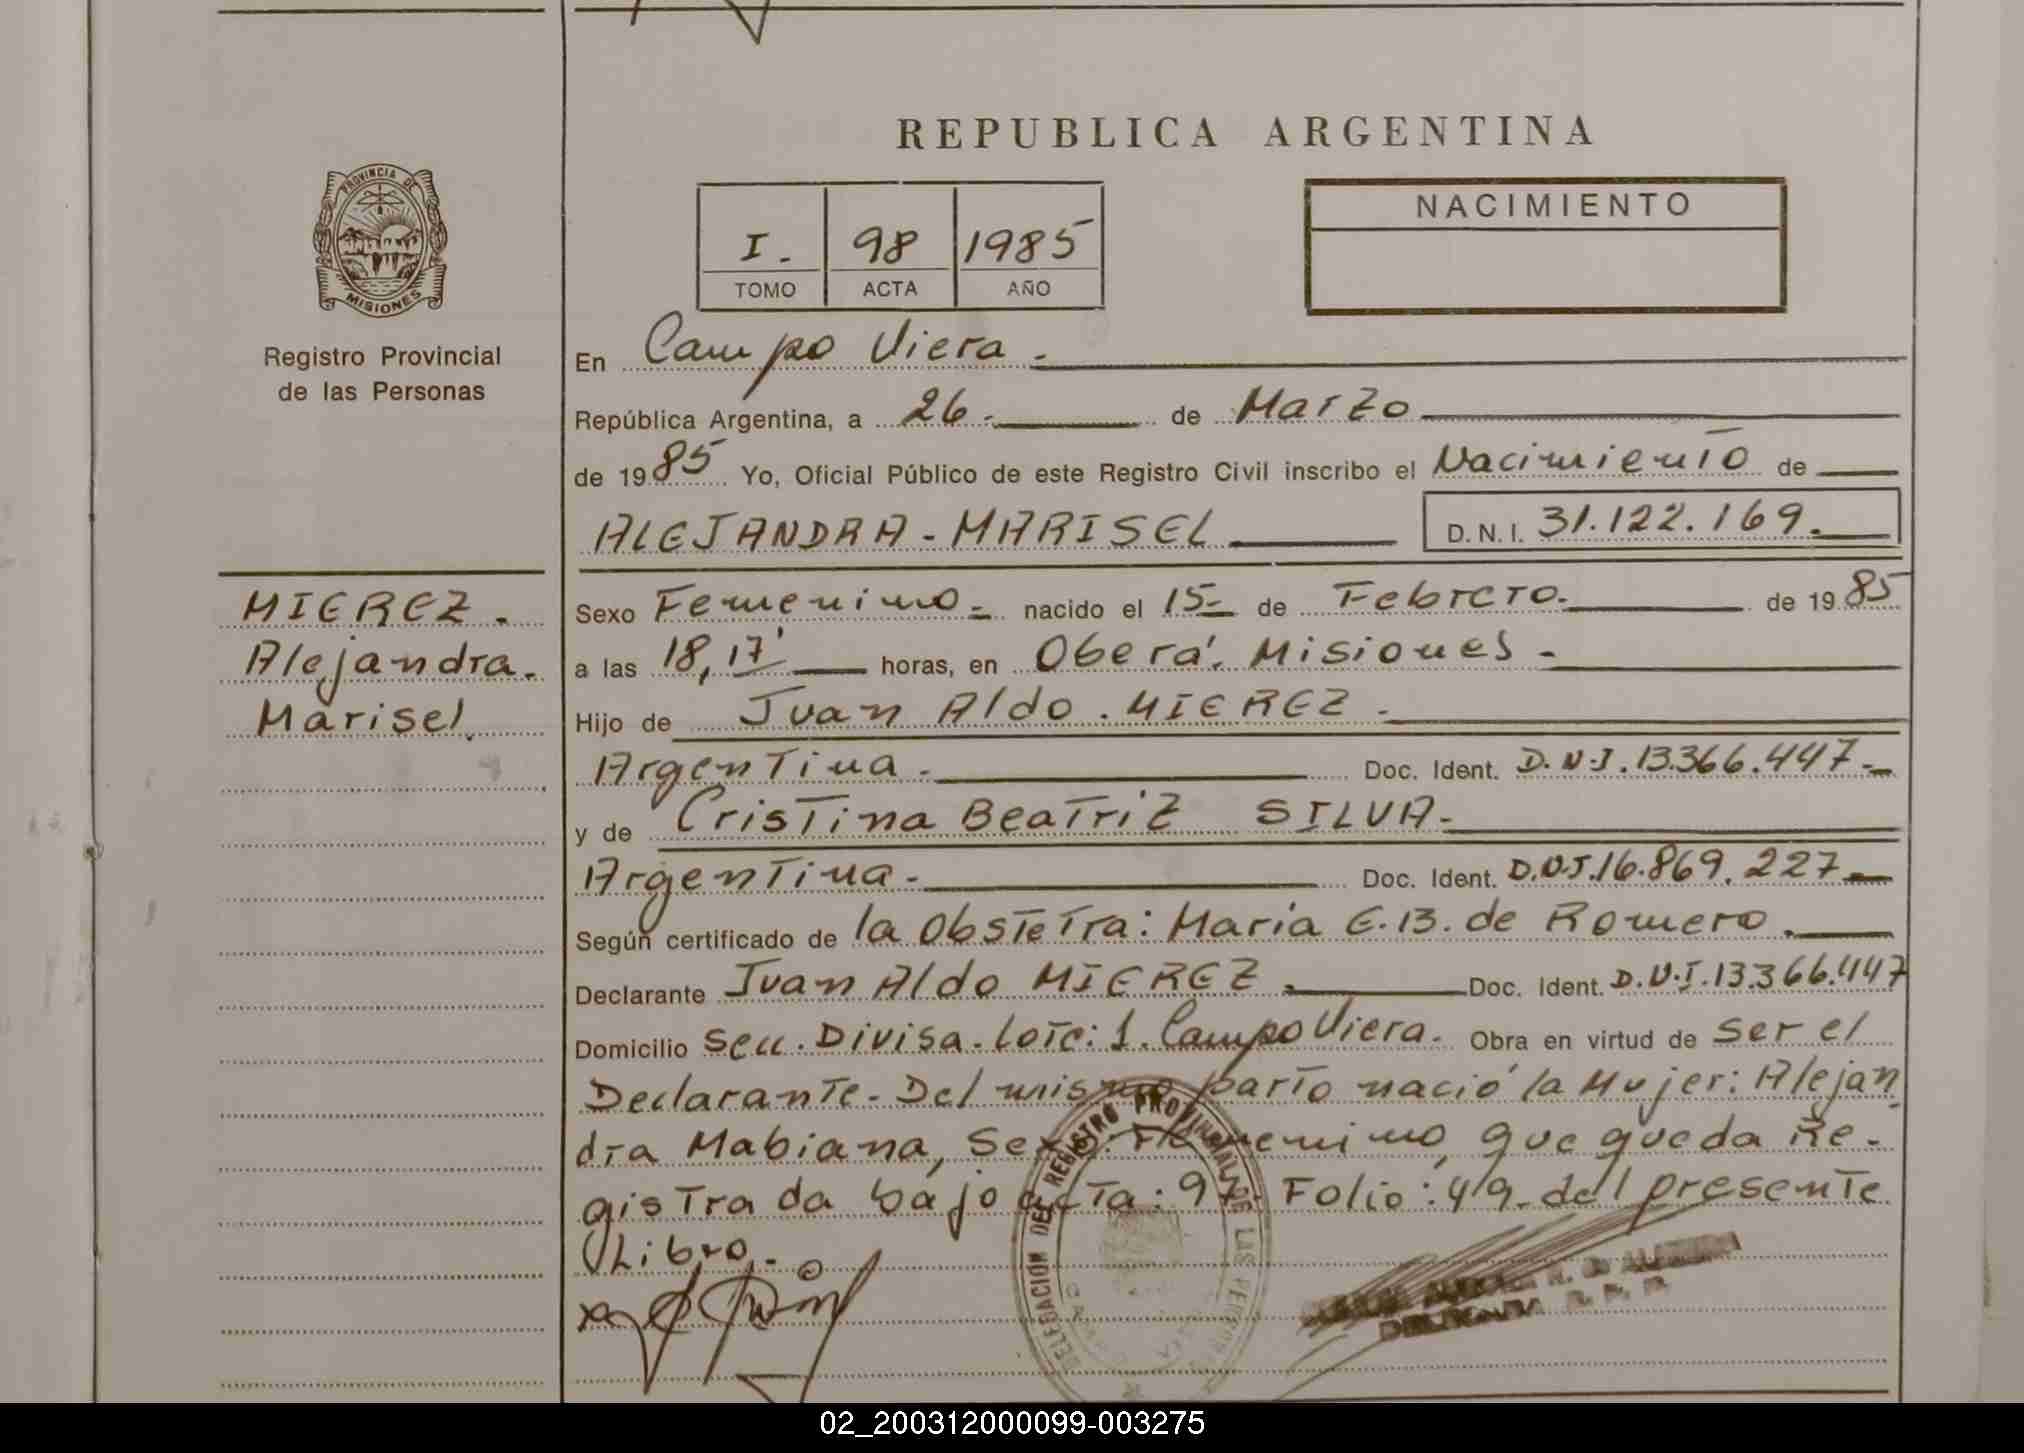 REPUBLICA ARGENTINA
PROVINCIA DE
MISIONES
Registro Provincial
de las Personas
I. 98 1985
TOMO ACTA AÑO
NACIMIENTO
En Campo Viera.
República Argentina, a 26. de Marzo
de 1985 Yo, Oficial Público de este Registro Civil inscribo el Nacimiento de
ALEJANDRA - MARISEL D.N.I. 31.122.169.
MIEREZ.
Alejandra.
Marisel.
Sexo Femenino.- nacido el 15- de Febrero. de 1985
a las 18,17' horas, en Oberá. Misiones.
Hijo de Juan Aldo. MIEREZ.
Argentina. Doc. Ident. D.N.I. 13.366.447.-
y de Cristina Beatriz SILVA-
Argentina. Doc. Ident. D.N.I. 16.869.227-
Según certificado de la Obstetra: Maria E.B. de Romero.
Declarante Juan Aldo MIEREZ. Doc. Ident. D.N.I. 13.366.447
Domicilio Divisa. Lote: 1. Campo Viera. Obra en virtud de ser el
Declarante. Del mismo parto nació la Mujer: Alejan
dra Mabiana, Sexo: Femenino, que queda Re-
gistrada bajo acta: 97. Folio: 49. del presente
Libro.
DELEGACIÓN DEL REGISTRO PROVINCIAL DE LAS PERSONAS
02_200312000099-003275